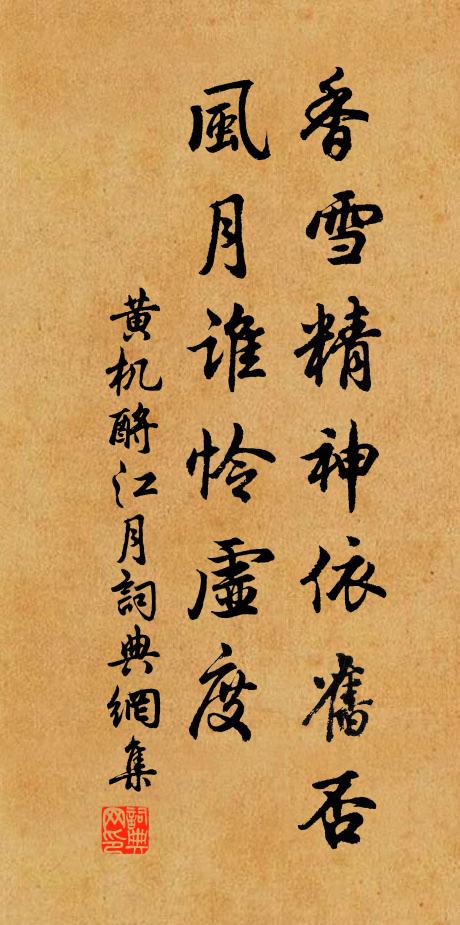 香雪精神依舊否
風月誰怜虛度
黄机酹江月詞典網集
詞典网印